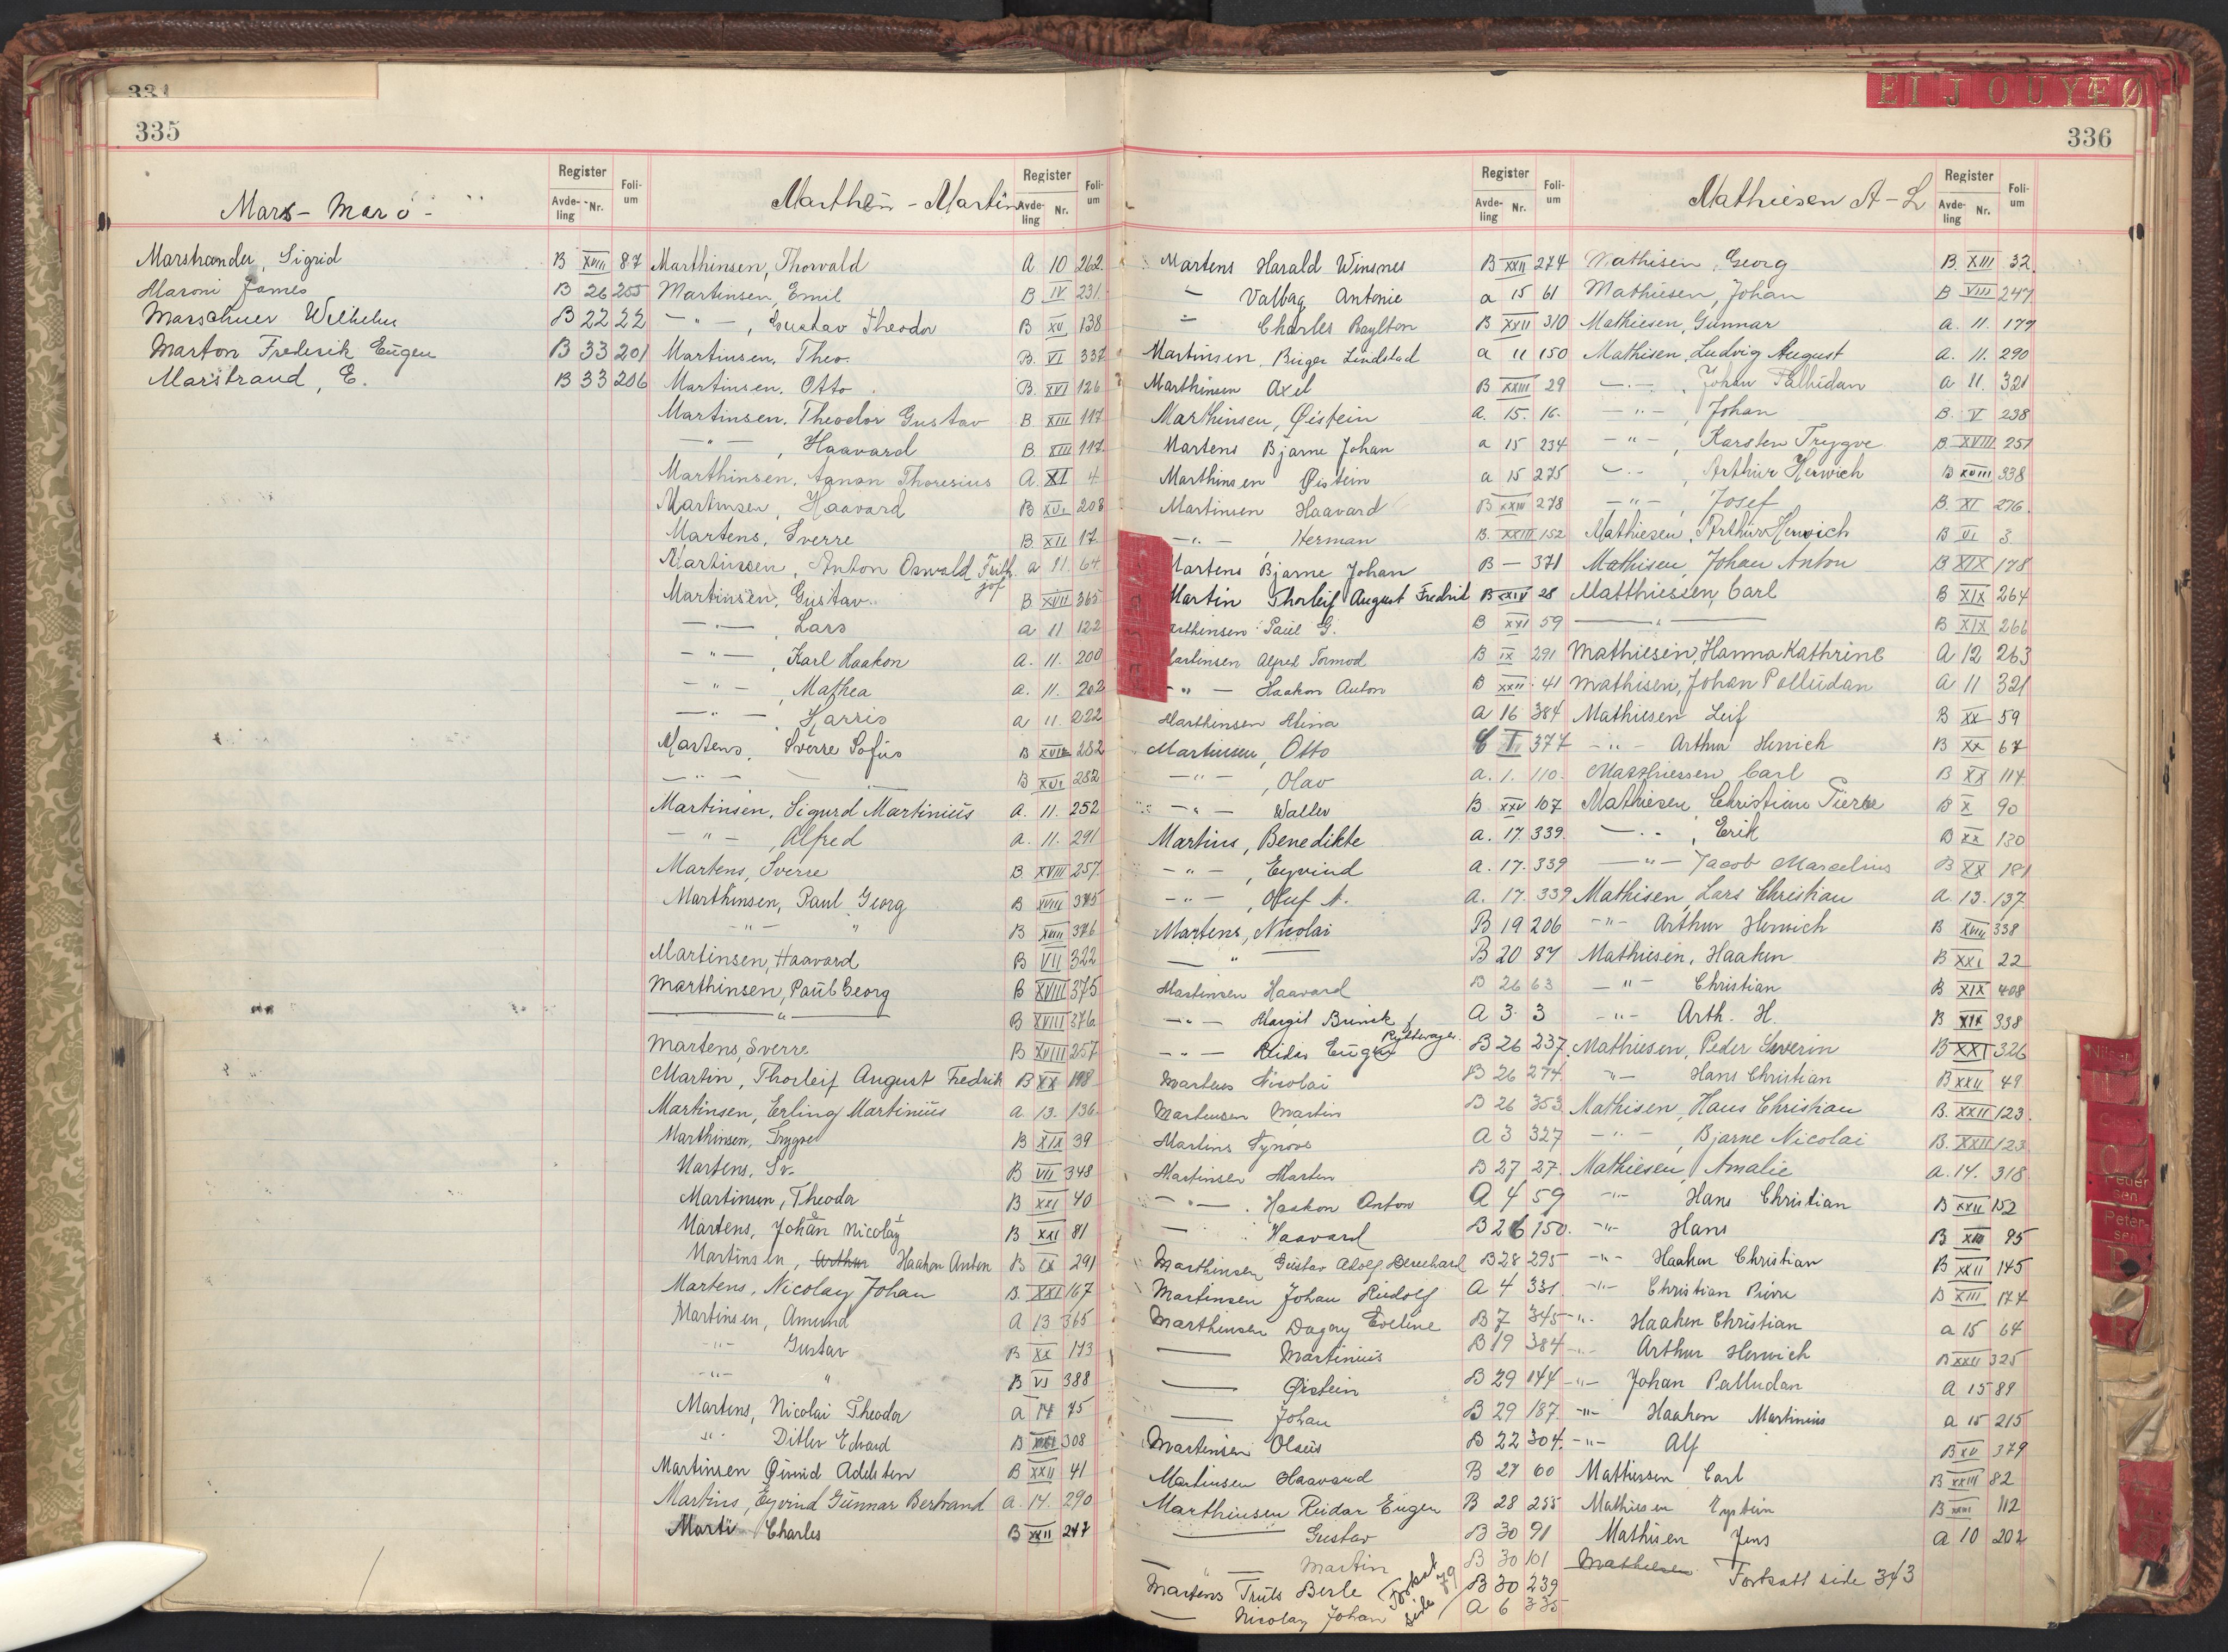 334
335
Register
Avdeling Nr.
Folium
Mars - Marö -
Marstrander, Sigrid B XVIII 87
Maroni James B 26 255
Marschner Wilhelm B 22 22
Marton Frederik Eugen B 33 201
Marstrand, E. B 33 206
Register
Avdeling Nr.
Folium
Marthen - Martin
Marthinsen, Thorvald A 10 262
Martinsen, Emil B IV 231
— " — , Gustav Theodor B XV 138
Martinsen, Theo. B. VI 337
Martinsen, Otto B. XVI 126
Martinsen, Theodor Gustav B XIII 117
— " — , Haavard B XIII 117
Marthinsen, Agnan Thoresius A. XI 4
Martinsen, Haavard B XVI 208
Martens, Sverre B. XII 17
Martinsen, Anton Oswald Frith. a 11. 64
jof
Martinsen, Gustav B XVII 365
— " — , Lars a 11 122
— " — , Karl Haakon a. 11. 200
— " — , Mathea a. 11. 202
— " — , Harris a 11. 222
Martens, Sverre Sofus B XVII 282
— " — B XVI 282
Martinsen, Sigurd Martinius a. 11. 252
— " — , Alfred a. 11. 291
Martens, Sverre B XVIII 257
Marthinsen, Paul Georg B XVIII 375
— " — " B XVIII 376
Martinsen, Haavard B VII 322
Marthinsen, Paul Georg B XVIII 375
— " — B XVIII 376
Martens, Sverre B XVIII 257
Martin, Thorleif August Fredrik B XX 198
Martinsen, Erling Martinius a 13. 136
Marthinsen, Trygve B XIX 39
Martens, Sv. B VII 348
Martinsen, Theodor B XXI 40
Martens, Johan Nicolay B XXI 81
Martinsen, Arthur Haakon Anton B IX 291
Martens, Nicolay Johan B. XXI 167
Martinsen, Amund A 13 365
— " — Gustav B XX 173
— " — " B VI 388
Martens, Nicolai Theodor a 14 75
" Ditlev Edvard B 308
Martinsen Øivind Adelsten B XXII 41
Martins, Eyvind Gunnar Bertrand a. 14. 290
Marti Charles B XXII 247
E I J O U Y Æ Ø
336
Register
Avdeling Nr.
Folium
Martens Harald Winsnes B XXII 274
" Valbag Antonie a 15 61
" Charles Baylton B XXII 310
Martinsen, Birger Lindstad a 11 150
Marthinsen Axel B XXIII 29
Marthinsen, Øistein a. 15. 16.
Martens Bjarne Johan a 15 234
Marthinsen Øistein a 15 275
Martinsen Haavard B XXIII 278
— " — , Herman B. XXIII 152
Martens Bjarne Johan B — 371
Martin Thorleif August Fredrik B XXIV 28
arthinsen Paul G. B XXI 59
artinsen Alfred Tormod B IX 291
— " — Haakon Anton B XXII 41
Marthinsen Alina A 16 384
Martinsen, Otto I 377
— " — , Olav a. 1. 110.
— " — Wallev B XXV 107
Martins, Benedikte a. 17. 339.
— " — , Eyvind a. 17. 339
— " — , Oluf A. a. 17. 339
Martens, Nicolai B 19 206
— " — B 20 87
Martinsen Haavard B 26 63
— " — Margit Brinck A 3 3
Rykkevagen.
— " — Reidar Eugen B 26 237
Martens Nicolai B 26 274
Martensen Martin B 26 353
Martins Synove A 3 327
Martinsen Marten B 27 27.
— " — . Haakon Anton A 4 59
— Haavard B 26 150.
Marthinsen Gustav Adolf Bernhard B 28 295
Martinsen Johan Rudolf A 4 331
Marthinsen Dagny Eveline B 7 345
— Martinius B 19 384
— Øistein B 29 144
— Johan B 29 187
Martinsen Olaus B 22 304.
Martinsen Haavard B 27 60
Marthinsen Reidar Eugen B 28 255
— Gustav B 30 91
— " — Martin B 30 101
Martens Truls Berle B 30 239
— Nicolay Johan A 6 335
Fortsat side 79
Register
Avdeling Nr.
Folium
Mathiesen A - L
Mathisen, Georg B. XIII 32.
Mathiesen, Johan B VIII 247
Mathiesen, Gunnar a. 11. 179
Mathisen, Ludvig August a. 11. 290
— " — , Johan Palludan a 11. 321
— " — , Johan B. V 238
— " — , Karsten Trygve B. XVIII 251
— " — , Arthur Herwich B XVIII 338
— " — , Josef B. XI 276.
Mathiesen, Arthur Herwich B VI 3
Mathisen, Johan Anton B XIX 178
Matthiesen, Carl B XIX 264
— " — B XIX 266
Mathiesen, Hanna Kathrine A 12 263
Mathisen, Johan Palludan a 11 321
Mathiesen Leif B XX 59
— " — Arthur Herwich B XX 67
Matthiessen Carl B XX 114
Mathiesen, Christian Pierre B X 90
— " — , Erik B XX 130
— " — Jacob Marcelius B XX 181
Mathisen, Lars Christian a. 13. 137
— " — Arthur Herwich B XVIII 338
Mathiesen, Haaken B XXI 22
— " — Christian B XIX 408
— " — Arth. H. B XIX 338
Mathiesen, Peder Severin B XXI 326
" — Hans Christian B XXII 49
Mathisen, Hans Christian B. XXII 123.
— " — , Bjarne Nicolai B. XXII 123
Mathiesen, Amalie a. 14. 318
— " — Hans Christian B XXII 152
— " — Hans B XIII 95
— " — Haaken Christian B XXII 145
— " — Christian Pierre B XIII 174
— " — Haaken Christian a 15 64
— " — Arthur Herwich B XXII 325
— " — Johan Palludan a 15 89
— " — Haaken Martinius a 15 215
— " — Alf B XV 379
Mathiessen Carl B XXIII 82
Mathiesen Eystein B XXIII 112
Mathisen Jens a 10 202
Mathiesen Fortsatt side 343
Nilsen
Peder
sen
Peter-
sen
P